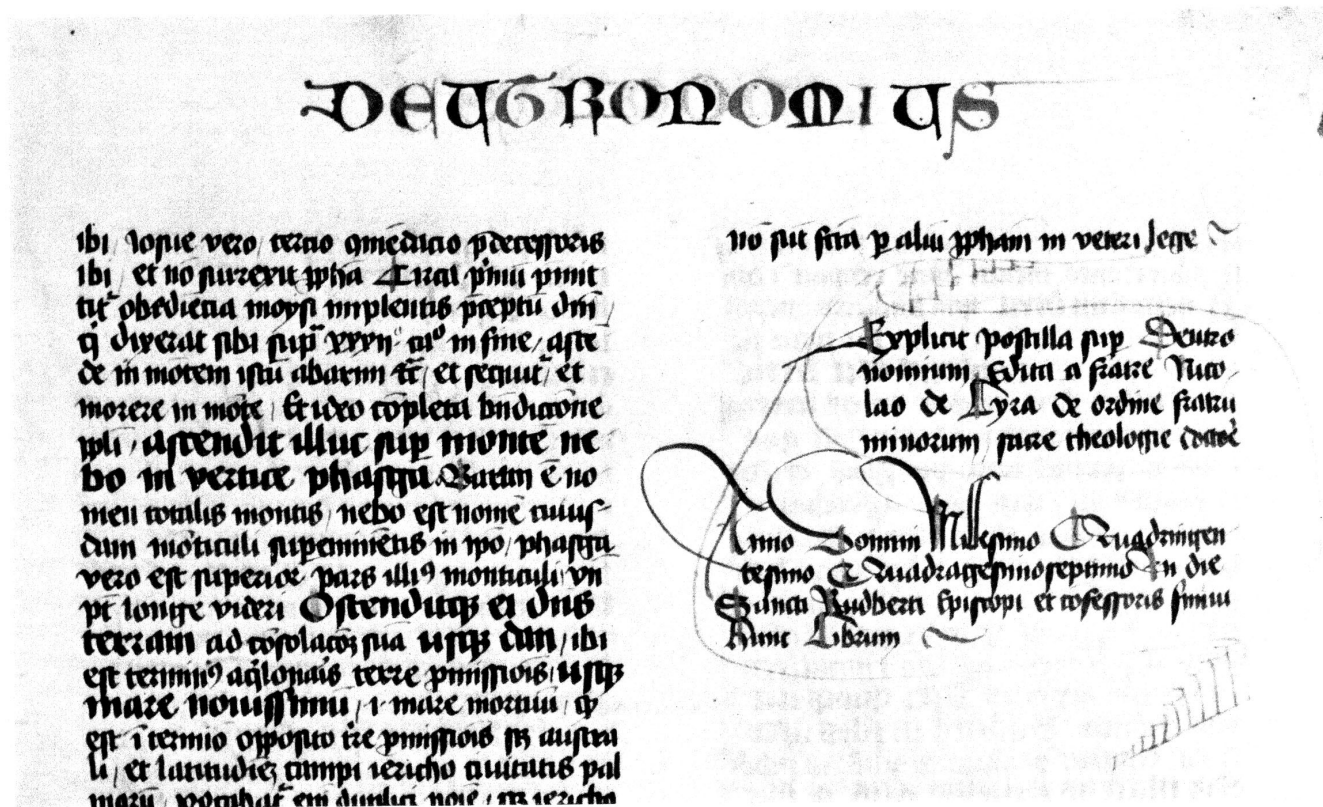 DEUTRONOMIUS
ibi / Iosue vero / tercio ꝯmēdacio p̄decessoris
ibi / et nō surrexit ꝓpha Circa p̄mū p̄mit
tit᷑ obediēcia moysi implentis p̄ceptū dn̄i
q̄ dixerat sibi sup̄ xxxijº cº in fine / ascē
de in mōtem istū abarim ⁊c̄ / et sequit᷑ / et
morere in mōte / Et ideo cōpleta bn̄diccōne
ppli / ascendit illuc suꝑ montē ne
bo in vertice phasga Barim ē no
men totalis montis / nebo est nomē cuius
dam mōticuli supeminētis in ip̄o / phasga
vero est superior pars illiꝰ monticuli / vn̄
pt̄ longe videri Ostenditqꝫ ei dn̄s
terram ad cōsolacōꝫ suā usqꝫ dan / ibi
est terminꝰ aq̇lonaris terre ꝓmissiōis / usqꝫ
mare nouissimū / .i. mare mortuū / qꝫ
est ī termīo opposito tr̄e ꝓmissiōis sꝫ austra
li / et latitudīeꝫ campi iericho ciuitatis pal
marū / vocabat᷑ em̄ duplici noīe / sꝫ iericho
nō sit fc̄ta ꝑ aliū ꝓpham in veteri lege
Explicit postilla suꝑ Deutro
nomium Edita a fratre Nico
lao de Lyra de ordine fratrū
minorum sacre theologie doctore
Anno Domini Millesimo Quadringen
tesimo Quadragesimoseptimo In die
Sancti Rudberti Episcopi et cōfessoris finiui
Hunc Librum